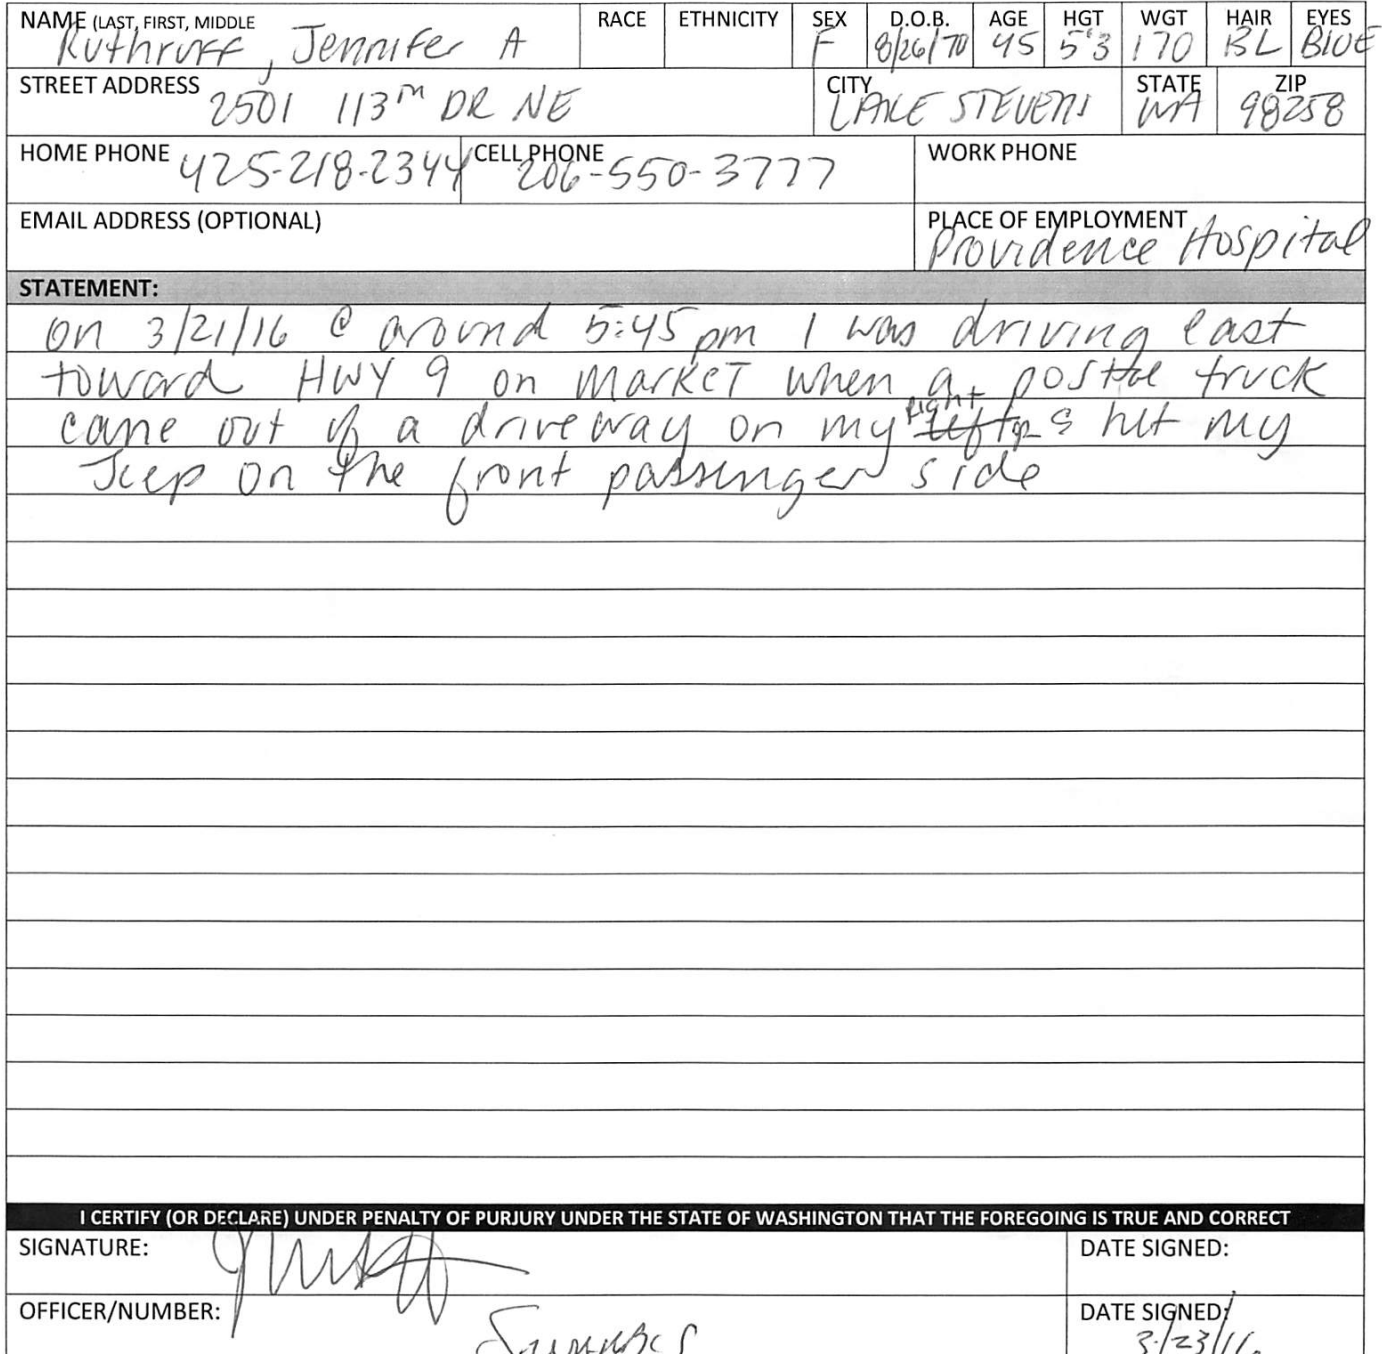 NAME (LAST, FIRST, MIDDLE RACE ETHNICITY SEX D.O.B. AGE HGT WGT HAIR EYES
Ruthruff, Jennifer A F 8/26/70 45 5'3 170 BL BLUE
STREET ADDRESS CITY STATE ZIP
2501 113th DR NE LAKE STEVENS WA 98258
HOME PHONE 425-218-2344 CELL PHONE 206-550-3777 WORK PHONE
EMAIL ADDRESS (OPTIONAL) PLACE OF EMPLOYMENT
Providence Hospital
STATEMENT:
on 3/21/16 @ around 5:45 pm I was driving east
toward HWY 9 on Market when a postal truck
came out of a driveway on my right & hit my
Jeep on the front passenger side
I CERTIFY (OR DECLARE) UNDER PENALTY OF PURJURY UNDER THE STATE OF WASHINGTON THAT THE FOREGOING IS TRUE AND CORRECT
SIGNATURE: DATE SIGNED:
OFFICER/NUMBER: DATE SIGNED:
3/23/16